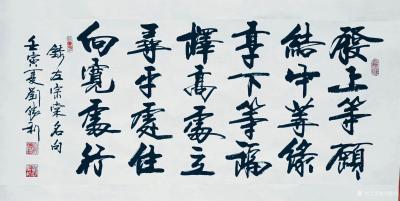 發上等願
結中等緣
享下等福
擇高處立
尋平處住
向寬處行
錄左宗棠名句
壬寅夏劉俊利